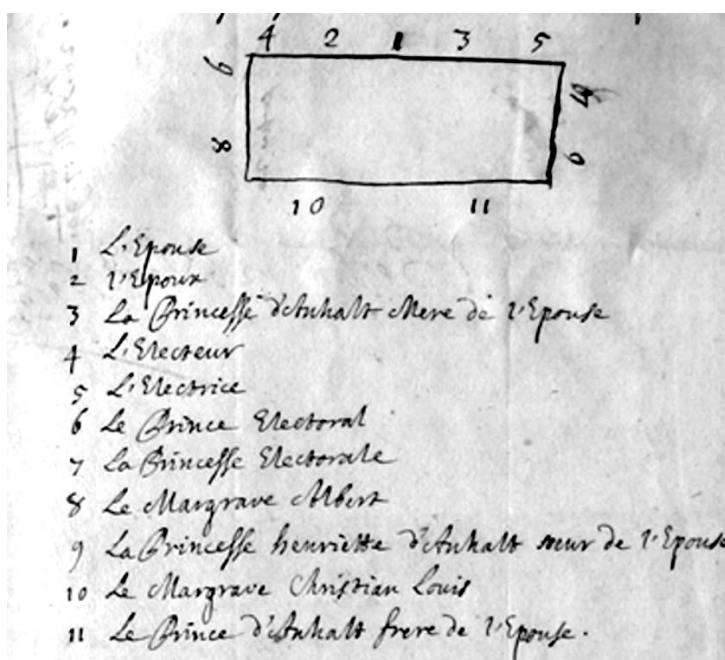 4 2 1 3 5
9
8
6
10 11
1 L'Epouse
2 l'Epoux
3 La Princesse d'Anhalt Mere de l'Epouse
4 L'Electeur
5 L'Electrice
6 Le Prince Electoral
7 La Princesse Electorale
8 Le Margrave Albert
9 La Princesse henriette d'Anhalt sœur de l'Epouse
10 Le Margrave Christian Louis
11 Le Prince d'Anhalt frere de l'Epouse.